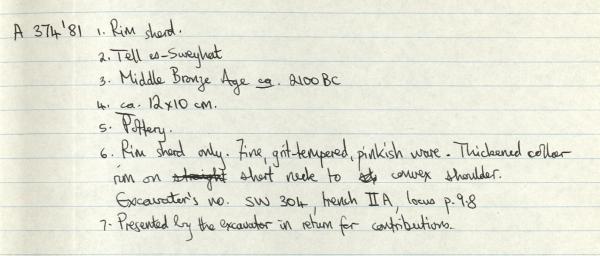 A 374'81 1. Rim sherd.
2. Tell es-Sweyhat
3. Middle Bronze Age ca. 2100 BC
4. ca. 12x10 cm.
5. Pottery.
6. Rim sherd only. Fine, grit-tempered, pinkish ware. Thickened collar
rim on straight short neck to convex shoulder.
Excavator's no. SW 304, trench IIA, locus p. 9.8
7. Presented by the excavator in return for contributions.